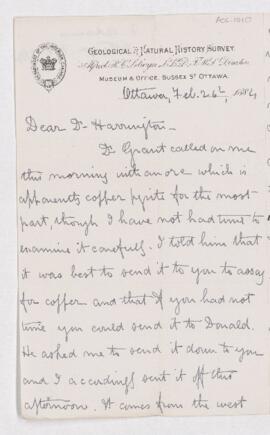 GEOLOGICAL & NATURAL HISTORY SURVEY.
Alfred R. C. Selwyn, L.L.D. F.R.S. Director.
MUSEUM & OFFICE. SUSSEX ST OTTAWA.
Ottawa, Feb. 26th, 1884
Dear Dr Harrington –
Dr Grant called on me
this morning with an ore which is
apparently copper pyrite for the most
part, though I have not had time to
examine it carefully. I told him that
it was best to send it to you to assay
for copper and that if you had not
time you could send it to Donald.
He asked me to send it down to you
and I accordingly sent it off this
afternoon. It comes from the west